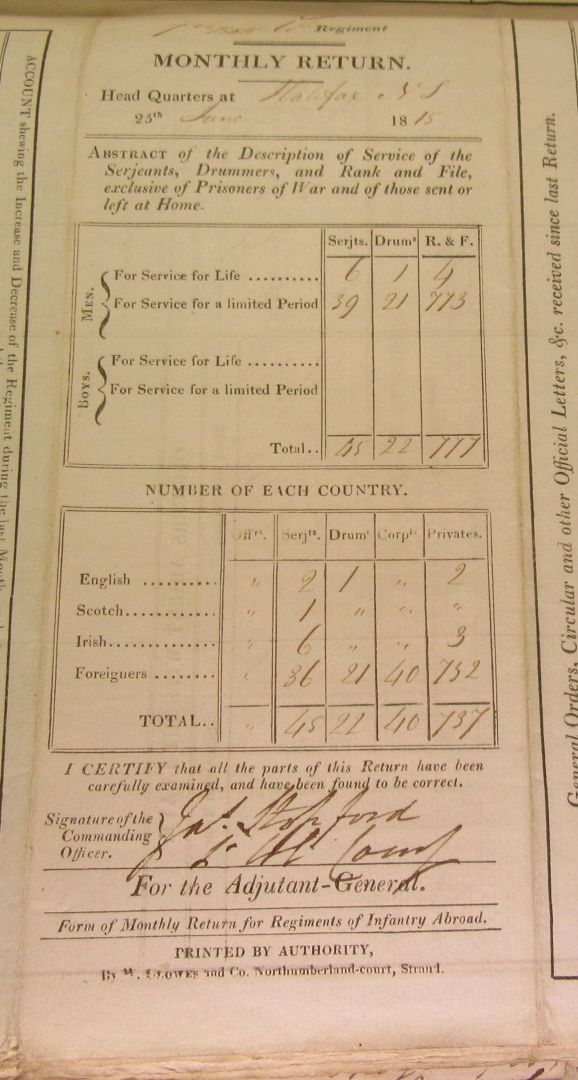 Regiment
MONTHLY RETURN.
Head Quarters at Halifax N S
25th June 1815
ABSTRACT of the Description of Service of the
Serjeants, Drummers, and Rank and File,
exclusive of Prisoners of War and of those sent or
left at Home.
Serjts. Drums R. & F.
MEN. { For Service for Life .......... 6 1 4
For Service for a limited Period 39 21 773
BOYS. { For Service for Life ..........
For Service for a limited Period
Total.. 45 22 777
NUMBER OF EACH COUNTRY.
Offrs. Serjts. Drums Corpls Privates.
English .......... " 2 1 " 2
Scotch.......... " 1 " " "
Irish.......... " 6 " " 3
Foreigners ........ " 36 21 40 732
TOTAL.. " 45 22 40 737
I CERTIFY that all the parts of this Return have been
carefully examined, and have been found to be correct.
Signature of the
Commanding
Officer.
For the Adjutant-General.
Form of Monthly Return for Regiments of Infantry Abroad.
PRINTED BY AUTHORITY,
By W. CLOWES and Co. Northumberland-court, Strand.
ACCOUNT shewing the Increase and Decrease of the Regiment during the last Month
General Orders, Circular and other Official Letters, &c. received since last Return.